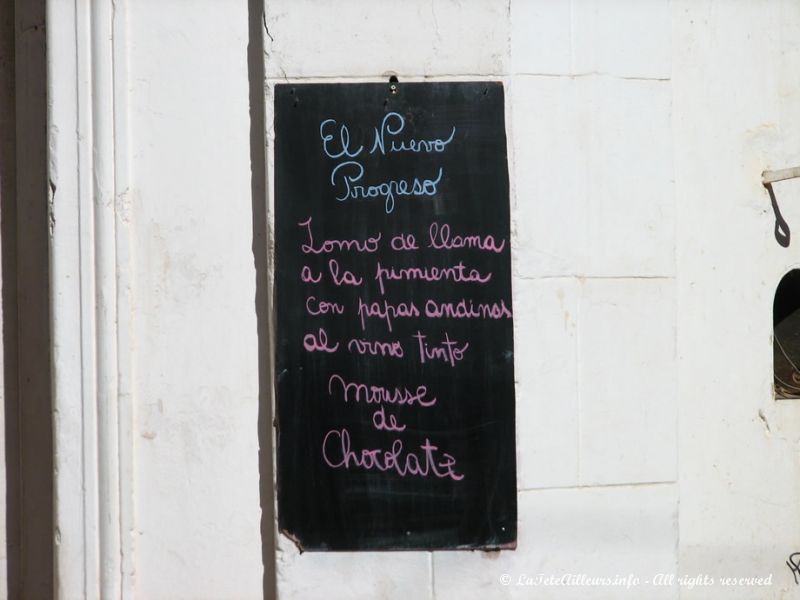 El Nuevo
Progreso
Lomo de llama
a la pimienta
con papas andinas
al vino tinto
Mousse
de
Chocolate
© LaTeteAilleurs.info - All rights reserved